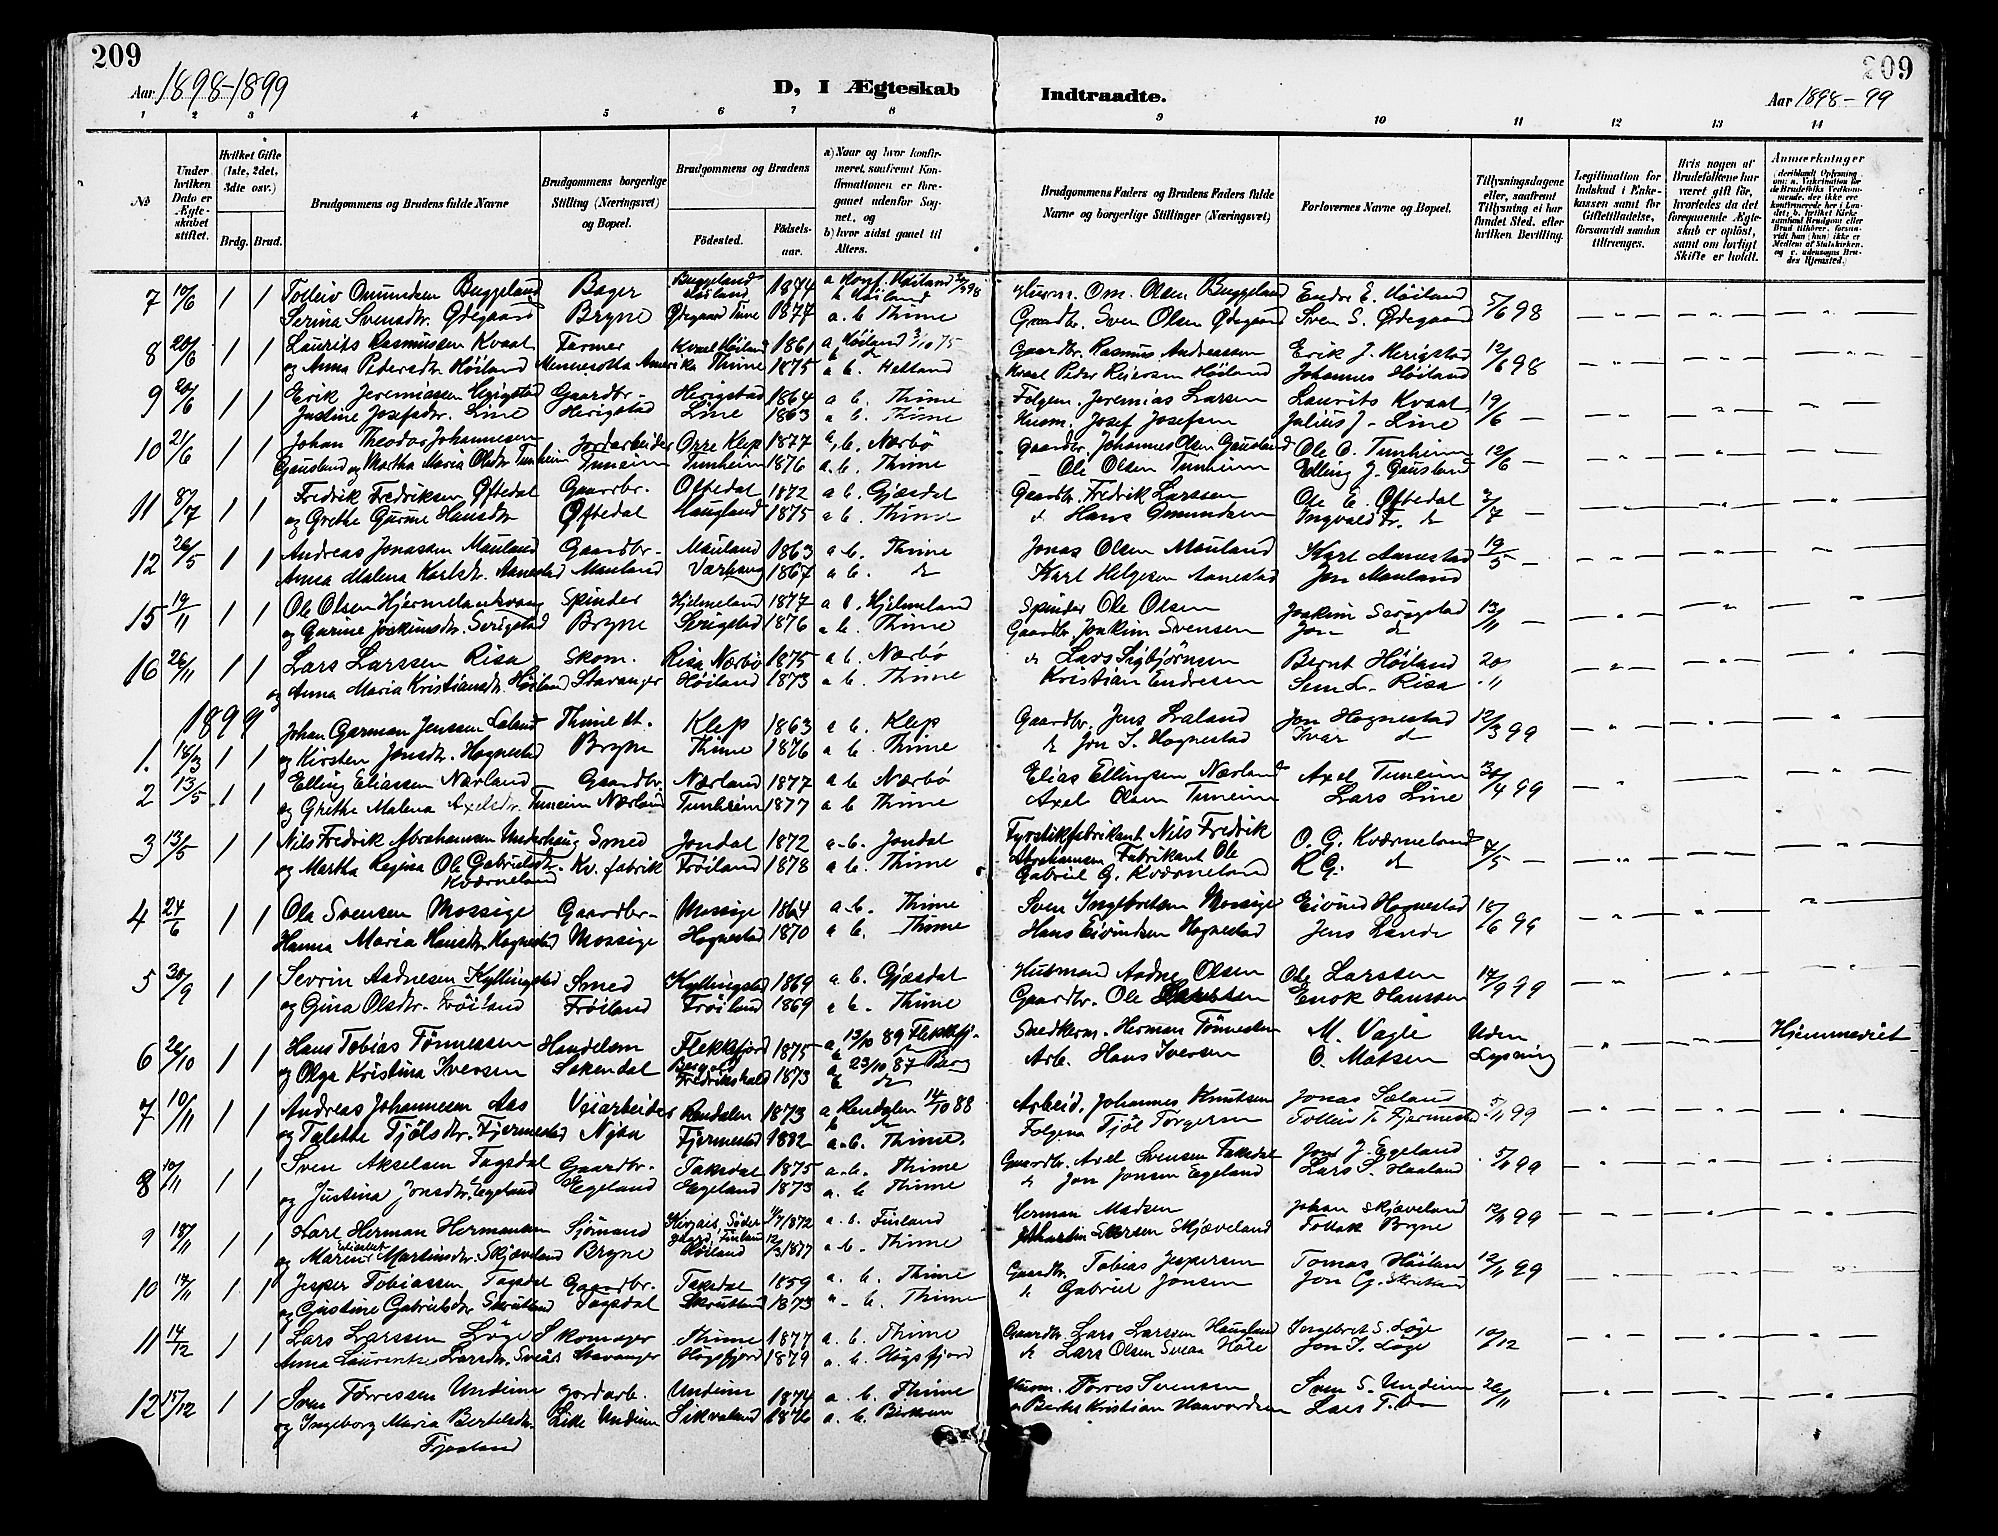 209
209
Aar 1898-1899
D, I Ægteskab
Indtraadte.
Aar 1898-99
1 2 3 4 5 6 7 8 9 10 11 12 13 14
No
Under hvilken Dato er Ægteskabet stiftet.
Hvilket Gifte (1ste, 2det, 3die osv.)
Brdg. Brud.
Brudgommens og Brudens fulde Navne
Brudgommens borgerlige Stilling (Næringsvei) og Bopæl.
Brudgommens og Brudens
Fødested.
Fødselsaar.
a) Naar og hvor konfirmeret, saafremt Konfirmationen er foregaaet udenfor Sognet, og
b) hvor sidst gaaet til Alters.
Brudgommens Faders og Brudens Faders fulde Navne og borgerlige Stillinger (Næringsvei)
Forlovernes Navne og Bopæl.
Tillysningsdagene eller, saafremt Tillysning ei har fundet Sted, efter hvilken Bevilling.
Legitimation for Indskud i Enkekassen samt for Giftetilladelse, forsaavidt saadan tiltrænges.
Hvis nogen af Brudefolkene har været gift før, hvorledes da det foregaaende Ægteskab er opløst, samt om lovligt Skifte er holdt.
Anmærkninger
7 10/6 1 1 Tolleiv Omundsen Buggeland Bager Buggeland Høiland 1874 Husm. Om. Olsen Buggeland Endre E. Høiland 5/6 98
Serina Svensdtr. Ødegaard Bryne Ødegaard Time 1877 a. b Thime Gaardbr. Sven Olsen Ødegaard Sven S. Ødegaard
8 20/6 1 1 Laurits Rasmussen Kvaal Farmer Kvaal Høiland 1861 a, Høiland 3/10 75 Gaardbr. Rasmus Andreassen Erik J. Herigstad 12/6 98
og Anna Pedersdtr. Høiland Minnesotta Amerika Thime 1875 a b. Helland Kvaal Peder Reiersen Høiland Johannes Høiland
9 20/6 1 1 Erik Jeremiassen Herigstad Gaardbr- Herigstad 1864 a b. Thime Folgem. Jeremias Larsen Laurits Kvaal 19/6 -
Justine Josefsdtr. Line Herigstad Line 1863 a b. Thime Husm. Josef Josefsen Julius J- Line
10 21/6 1 1 Johan Theodor Johannesen Jordarbeider Orre Klep 1877 a, b. Nærbø Gaardbr. Johannes Olsen Gausland Ole O. Tunheim 12/6 -
Gausland og Martha Maria Olsdtr Tunheim Tuneim Tunheim 1876 a. b. Thime Ole Olsen Tuneim Elling J. Gausland
11 8/7 1 1 Fredrik Fredriksen Øftedal Gaardbr. Oftedal 1872 a b. Gjæsdal Gaardbr. Fredrik Larssen Ole E. Øftedal 2/7 -
og Grethe Gurine Hansdtr Øftedal Haugland 1875 a b. Thime d Hans Omundsen Ingvald Fr. d
12 26/5 1 1 Andreas Jonassen Mauland Gaardbr- Mauland 1863 a b. Thime Jonas Olsen Mauland Karl Aanestad 19/5 -
Anna Malena Karlsdtr. Aanestad Mauland Varhaug 1867 a b. d Karl Helgesen Aanestad Jon Mauland
15 19/11 1 1 Ole Olsen Spinder Hjelmeland 1877 a b. Hjelmeland Spinder Ole Olsen Joakim Serigstad 13/11 -
og Gurine Joakimsdtr. Serigstad Bryne Serigstad 1876 a b. Thime Gaardbr. Joakim Svensen Jon d
16 26/11 1 1 Lars Larssen Risa Skom. Risa Nærbø 1875 a b. Nærbø d Lars Sigbjørnsen Bernt Høiland 20/11
og Anna Maria Kristiansdtr. Høiland Stavanger Høiland 1873 a b. Thime Kristian Endresen Sem L. Risa
1899
1. 18/3 1 1 Johan Garman Jenssen Laland Thime st. Klep 1863 a b. Klep Gaardbr. Jens Laland Jon Hognestad 12/3 99
og Kirsten Jonsdtr. Hognestad Bryne Thime 1876 a b. Thime d Jon I. Hognestad Ivar d
2 13/5 1 1 Elling Eliassen Nærland Gaardbr. Nærland 1877 a b Nærbø Elias Ellingsen Nærland Axel Tuneim 30/4 99
og Grethe Malena Axelsdtr. Tuneim Nærland Tunheim 1877 a b Thime Axel Olsen Tuneim Lars Line
3 13/5 1 1 Nils Fredrik Abrahamsen Underhaug Smed Jondal 1872 a-b. Jondal Fyrstikfabrikant Nils Fredrik O. G. Kværneland 7/5 -
og Martha Regina Ole Gabrielsdtr. Kv. fabrik Frøiland 1878 a b. Thime Abrahamsen Fabrikant Ole R G. d
Kværneland Gabriel G. Kværneland
4 24/6 1 1 Ola Svensen Mossige Gaardbr- Mossige 1864 a-b. Thime Sven Ingebretsen Mossige Eivind Hognestad 18/6 99
Hanna Maria Hansdtr. Hognestad Mossige Hognestad 1870 a b. Thime Hans Eivindsen Hognestad Jens Lande
5 30/9 1 1 Sevrin Aadnesen Kyllingstad Smed Kyllingstad 1869 a b. Gjæsdal Husmand Aadne Olsen Ole Larssen 17/9 99
og Gina Olsdtr. Frøiland Frøiland Frøiland 1869 a b. Thime Gaardbr. Ole Larssen Enok Hanssen
6 26/10 1 1 Hans Tobias Tønnessen Handelsm Flekkefjord 1875 a, 13/10 89 Flekkefj. Snedkerm. Herman Tønnessen M. Vagle Uden Hjemmeviet
og Olga Kristina Iversen Sokendal Berg v. Fredrikshald 1873 a, 23/10 87 Berg Arb. Hans Iversen O. Matsen Lysning
7 10/11 1 1 Andreas Johannesen Aas Veiarbeider Rendalen 1873 a Rendalen 14/10 88 Arbeid. Johannes Knutsen Jonas Sæland 5/11 99
og Talette Tjølsdtr. Fjermestad Njåa Fjermestad 1882 a-b. Thime. Folgem Tjøl Torgersen Tolleiv T. Fjermestad
8 10/11 1 1 Sven Akselsen Tagsdal Gaardbr. Taksdal 1875 a-b. Thime Gaardbr. Axel Svensen Taksdal Jon J. Egeland 5/11 99
og Justina Jonsdtr. Egeland Egeland Egeland 1873 a. b Thime d Jon Jonsen Egeland Lars S. Haaland
9 18/11 1 1 Karl Herman Hermansen Sjømand 1872 a. b. Finland Herman Madsen Johan Skjæveland 12/11 99
og Marine Martinsdtr. Skjæveland Bryne Høiland 12/3 1877 a-b. Thime Skjæveland Tollak Bryne
10 14/11 1 1 Jesper Tobiassen Tagsdal Gaardbr. Taksdal 1859 a. b. Thime Gaardbr. Tobias Jespersen Tomas Høiland 12/11 99
og Gustine Gabrielsdtr Skrutland Tagsdal Skrutland 1873 a-b. Thime d Gabriel Jonsen Jon G. Skrutland
11 14/12 1 1 Lars Larssen Løge Skomager Thime 1877 a. b. Thime Gaardbr. Lars Larssen Haugland Ingebret S. Løge 10/12
Anna Laurentse Larsdtr. Svean Stavanger Høgsfjord 1879 a. b. Høgsfjord d Lars Olsen Svean Høle Jon I. Løge
12 15/12 1 1 Sven Tørressen Undeim Jordarb. Undeim 1874 a. b. Thime Husm. Tørres Svensen Sven S. Undeim 26/11
og Ingeborg Maria Bertelsdtr. Lille Undeim Sikvaland 1876 a. b Kristian Haavardsen Lars T.